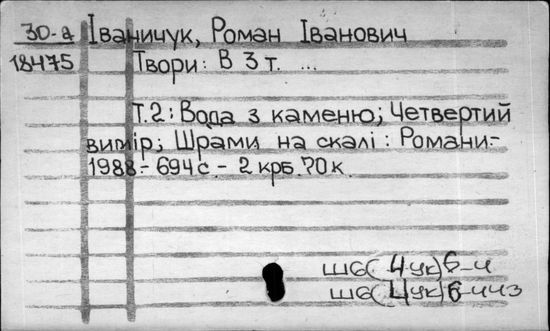 30-а Іваничук, Роман Іванович
18475 Твори: В 3 т. ...
Т.2: Вода з каменю; Четвертий
вимір; Шрами на скалі: Романи.-
1988.- 694 с.- 2 крб. 70 к.
Ш6(4Ук)6-4
Ш6(4Ук)6-443